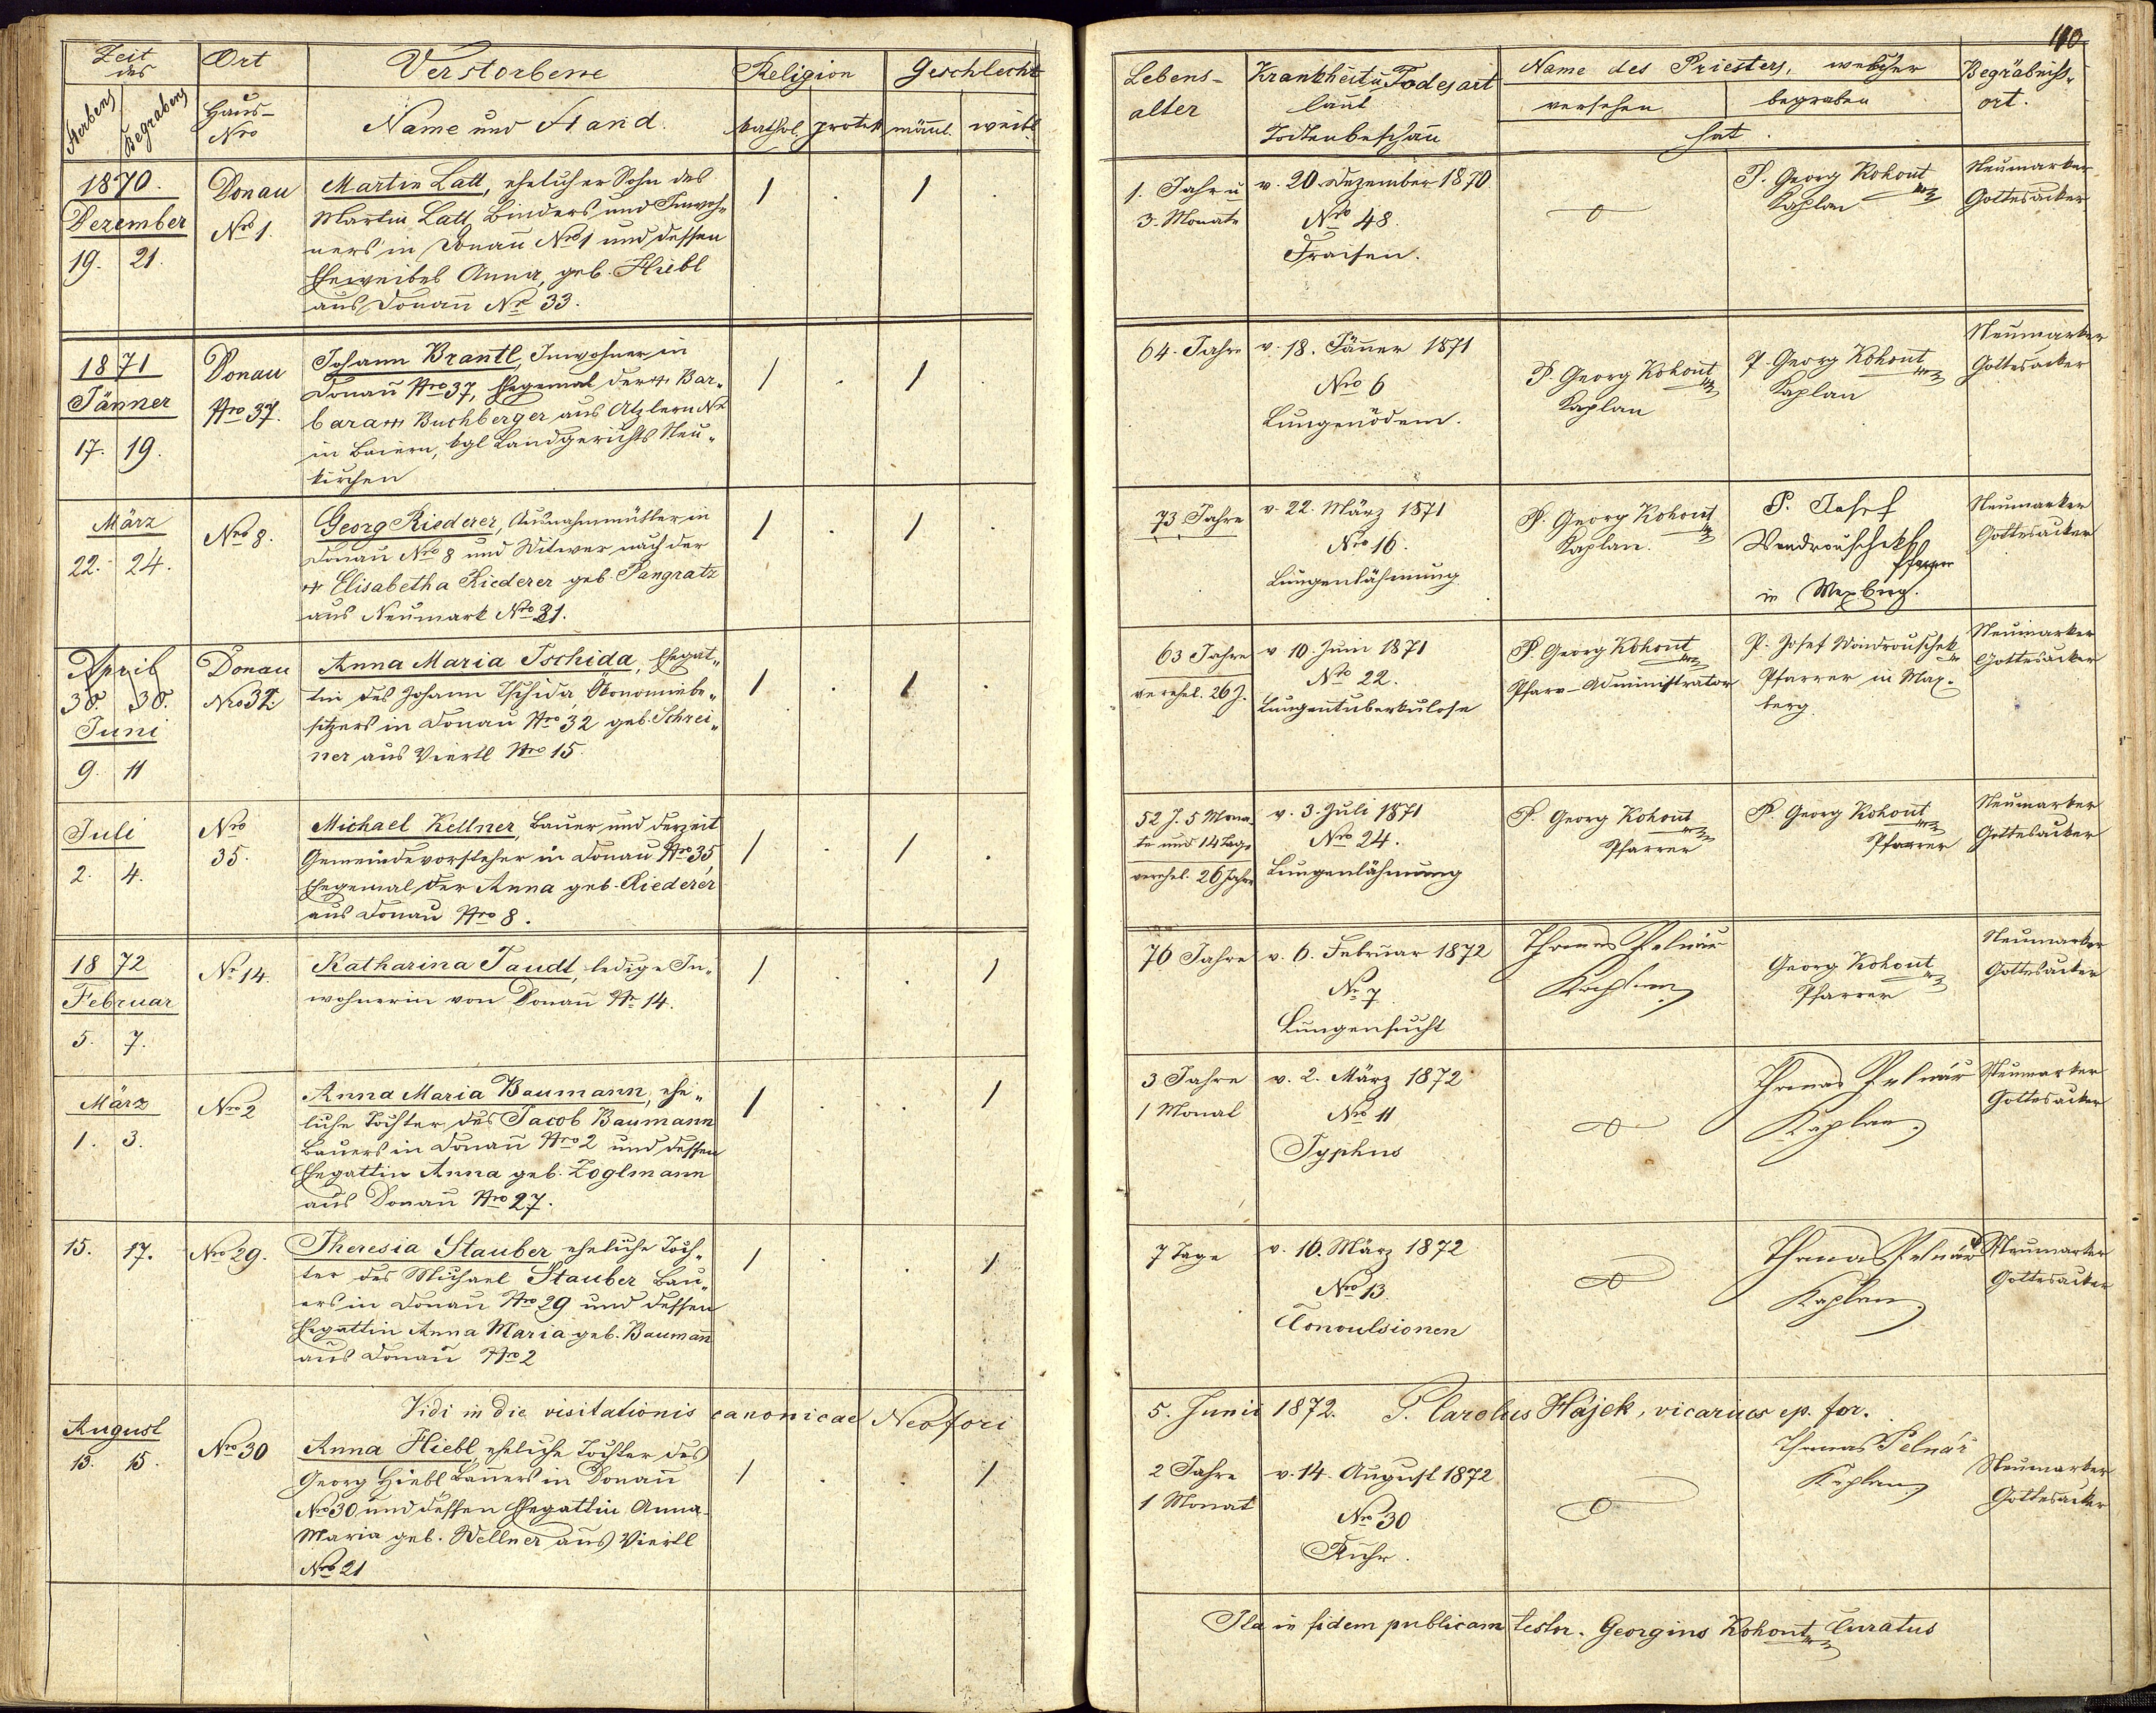 Zeit des
Sterbens
Begrabens
Ort
Haus-
Nro
Verstorbene
Name und Stand.
Religion
kathol. protest
Geschlecht
männl. weibl
1870.
Dezember
19. 21.
Donau
Nro 1.
Martin Latt, ehelicher Sohn des
Martin Latt, Binders und Inwoh-
ners in Donau Nro 1 und dessen
Eheweibes Anna, geb. Hiebl
aus Donau Nr 33.
1 . 1 .
1871
Jänner
17. 19.
Donau
Nro 37.
Johann Brantl, Inwohner in
Donau Nro 37, Ehegemal der Bar-
bara Buchberger aus Atzlern Nr
in Baiern, kgl Landgerichts Neu-
kirchen
1 . 1 .
März
22. 24.
Nro 8.
Georg Riederer, Ausnahmmüller in
Donau Nro 8 und Witwer nach der
Elisabetha Riederer geb. Pangratz
aus Neumark Nro 31.
1 . 1 .
April
30. 30.
Juni
9. 11
Donau
Nro 32.
Anna Maria Tschida, Ehegat-
tin des Johann Tschida, Ökonomiebe-
sitzers in Donau Nro 32 geb. Schrei-
ner aus Viertl Nro 15.
1 . 1 .
Juli
2. 4.
Nro
35.
Michael Kellner, Bauer und derzeit
Gemeindevorsteher in Donau Nro 35,
Ehegemal der Anna geb. Riederer
aus Donau Nro 8.
1 . 1 .
1872
Februar
5. 7.
Nr 14.
Katharina Taudt, ledige In-
wohnerin von Donau Nr 14.
1 . . 1
März
1. 3.
Nro 2
Anna Maria Baumann, ehe-
liche Tochter des Jacob Baumann
Bauers in Donau Nro 2 und dessen
Ehegattin Anna geb. Zoglmann
aus Donau Nro 27.
1 . . 1
15. 17.
Nro 29.
Theresia Stauber eheliche Toch-
ter des Michael Stauber Bau-
ers in Donau Nro 29 und dessen
Ehegattin Anna Maria geb. Baumañ
aus Donau Nro 2
1 . . 1
Vidi in die visitationis canonicae Neofori
August
13. 15.
Nro 30
Anna Hiebl, eheliche Tochter des
Georg Hiebl, Bauers in Donau
Nro 30 und dessen Ehegattin Anna
Maria geb. Wellner aus Viertl
Nro 21
1 . . 1
110
Lebens-
alter
Krankheit u Todesart
laut
Todtenbeschau
Name des Priesters, welcher
versehen
begraben
hat.
Begräbniß-
ort.
1. Jahr u
3. Monate
v. 20. Dezember 1870
Nro 48.
Fraisen.
P. Georg Kohout
Kaplan
Neumarker
Gottesacker
64. Jahre
v. 18. Jänner 1871
Nro 6
Lungenödem.
P. Georg Kohout
Kaplan
P. Georg Kohout
Kaplan
Neumarker
Gottesacker
73 Jahre
v. 22. März 1871
Nro 16.
Lungenlähmung
P. Georg Kohout
Kaplan.
P. Josef
Wondrouschekh
Pfarrer
in Maxberg.
Neumarker
Gottesacker
63 Jahre
verehel. 26 J.
v 10. Juni 1871
Nro 22.
Lungentuberkulose
P. Georg Kohout
Pfarr-Administrator
P. Josef Wondrouschek
Pfarrer in Max-
berg
Neumarker
Gottesacker
52 J. 5 Mona-
te und 14 Tage
verehel. 26 Jahre
v. 3. Juli 1871
Nro 24.
Lungenlähmung
P. Georg Kohout
Pfarrer
P. Georg Kohout
Pfarrer
Neumarker
Gottesacker
76 Jahre
v. 6. Februar 1872
Nr 7
Lungensucht
Thomas Pelnář
Kaplan
Georg Kohout
Pfarrer
Neumarker
Gottesacker
3 Jahre
1 Monat
v. 2. März 1872
Nro 11
Typhus
Thomas Pelnář
Kaplan
Neumarker
Gottesacker
7 Tage
v. 16. März 1872
Nro 13.
Convulsionen
Thomas Pelnář
Kaplan
Neumarker
Gottesacker
5. Junii 1872. P. Carolus Hájek, vicarius ep. for.
2 Jahre
1 Monat
v. 14. August 1872
Nro 30
Ruhr.
Thomas Pelnář
Kaplan
Neumarker
Gottesacker
Ita in fidem publicam testor. Georgius Kohout Curatus